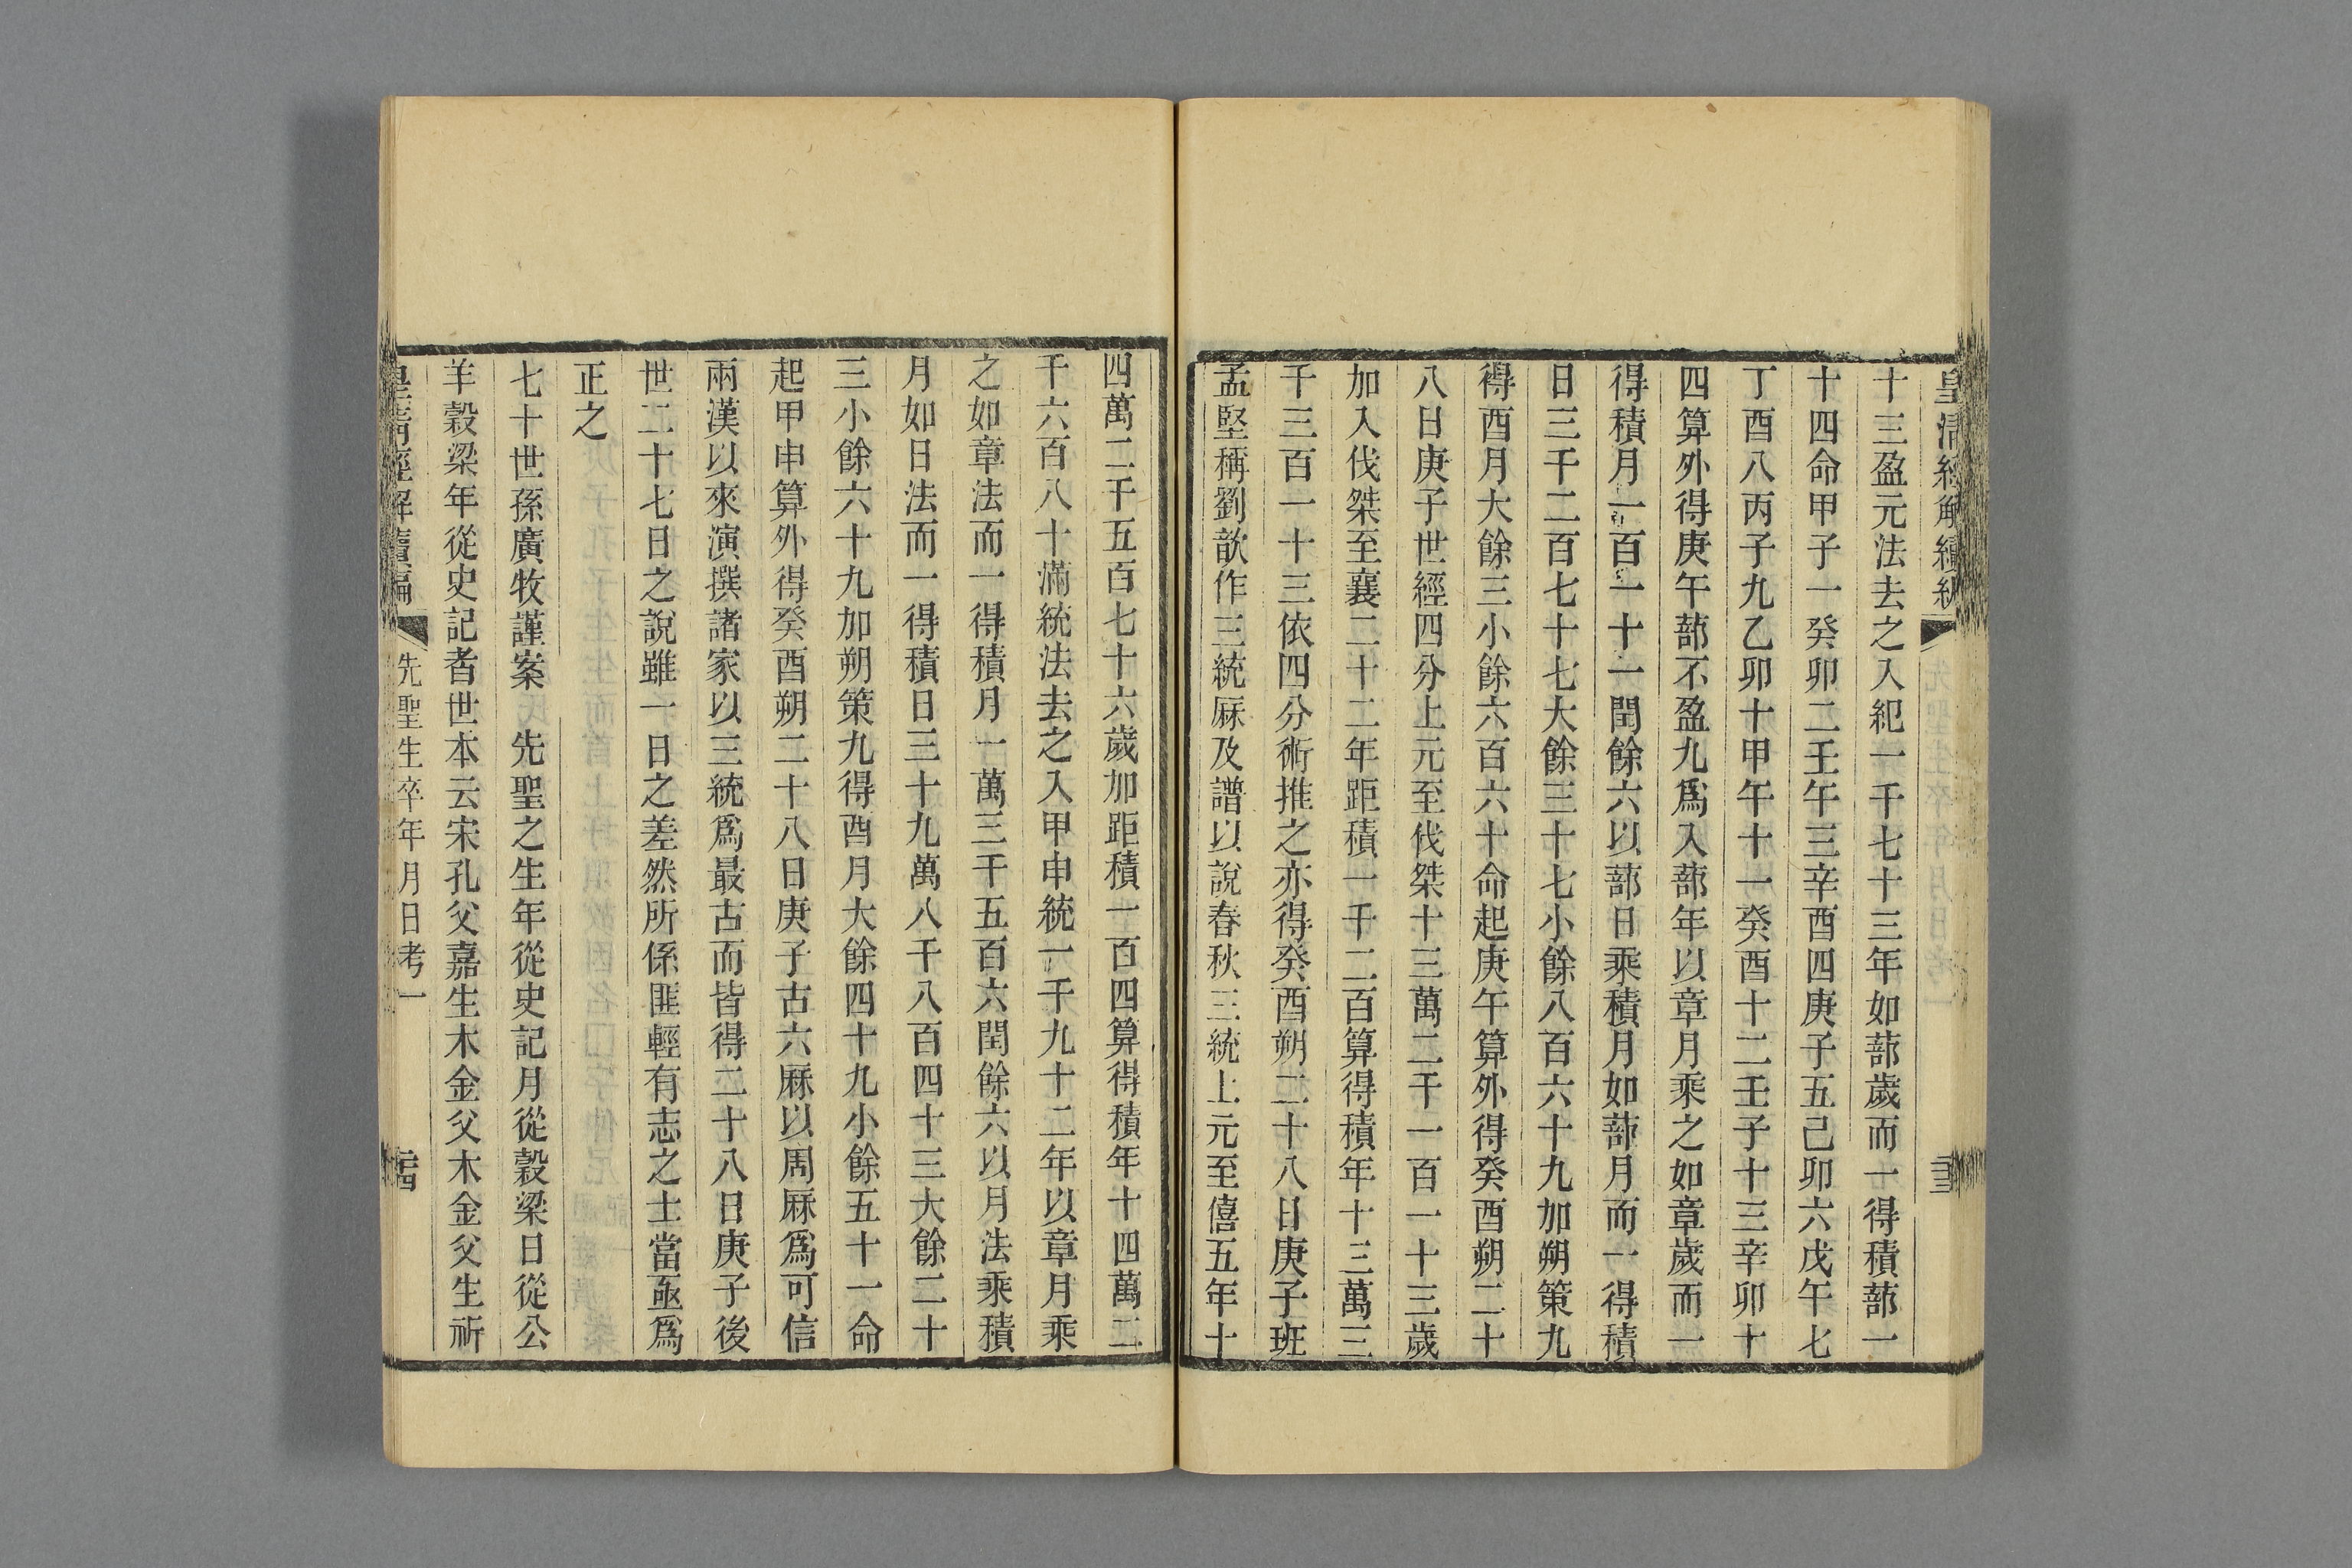 皇清經解續編
三
十三盈元法去之入紀一千七十三年如蔀歲而一得積蔀一
十四命甲子一癸卯二壬午三辛酉四庚子五己卯六戊午七
丁酉八丙子九乙卯十甲午十一癸酉十二壬子十三辛卯十
四算外得庚午蔀不盈九爲入蔀年以章月乘之如章歲而一
得積月一百一十一閏餘六以蔀日乘積月如蔀月而一得積
日三千二百七十七大餘三十七小餘八百六十九加朔策九
得酉月大餘三小餘六百六十命起庚午算外得癸酉朔二十
八日庚子世經四分上元至伐桀十三萬二千一百一十三歲
加入伐桀至襄二十二年距積一千二百算得積年十三萬三
千三百一十三依四分術推之亦得癸酉朔二十八日庚子班
孟堅稱劉歆作三統厤及譜以說春秋三統上元至僖五年十
四萬二千五百七十六歲加距積一百四算得積年十四萬二
千六百八十滿統法去之入甲申統一千九十二年以章月乘
之如章法而一得積月一萬三千五百六閏餘六以月法乘積
月如日法而一得積日三十九萬八千八百四十三大餘二十
三小餘六十九加朔策九得酉月大餘四十九小餘五十一命
起甲申算外得癸酉朔二十八日庚子古六厤以周厤爲可信
兩漢以來演撰諸家以三統爲最古而皆得二十八日庚子後
世二十七日之說雖一日之差然所係匪輕有志之士當亟爲
正之
七十世孫廣牧謹案　先聖之生年從史記月從穀梁日從公
羊穀梁年從史記者世本云宋孔父嘉生木金父木金父生祈
皇清經解續編
先聖生卒年月日考一